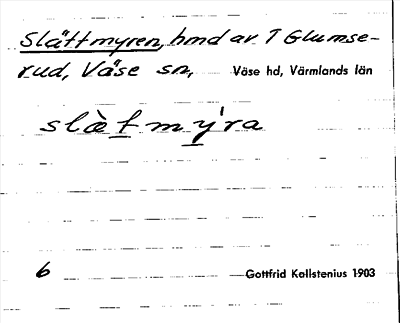 Slättmyren, hmd av T Glumse-
rud, Väse sn, Väse hd, Värmlands län
slæ̀t my̍ra
6 Gottfrid Kallstenius 1903